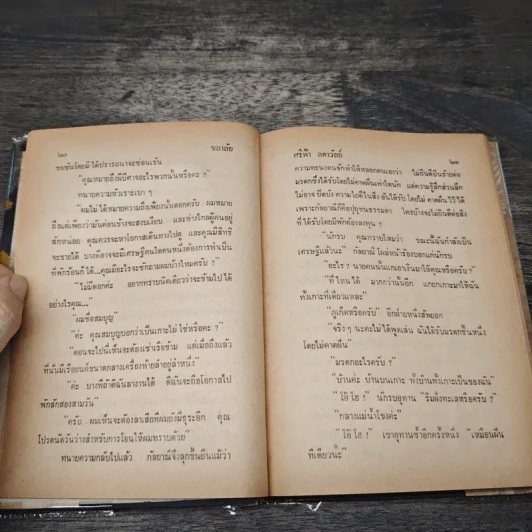 ๒๐ ชลาลัย
ขมขันโดยมิได้ปรารถนาจะซ่อนเร้น
"คุณหมายถึงผีปีศาจอะไรพวกนั้นหรือคะ ?"
ทนายความหัวเราะเบา ๆ
"ผมไม่ได้หมายความถึงเพียงนั้นดอกครับ ผมหมาย
ถึงแต่เพียงว่ามันค่อนข้างจะสงบเงียบ และห่างไกลผู้คนอยู่
สักหน่อย คุณควรจะหาโอกาสเดินทางไปดู และคุณมีสิทธิ์
จะขายได้ บางทีอาจจะมีเศรษฐีคนใดคนหนึ่งต้องการทำเป็น
ที่พักร้อนก็ได้...คุณมีอะไรจะซักถามผมบ้างไหมครับ ?"
"ไม่มีดอกค่ะ อยากทราบนิดเดียวว่าจะข้ามไปได้
อย่างไรคุณ..."
"ผมชื่อสมบุญ"
"ค่ะ คุณสมบุญบอกว่าเป็นเกาะไม่ใช่หรือคะ ?"
"ตอนจะไปนี่เห็นจะต้องเช่าเรือข้าม แต่เมื่อถึงแล้ว
ที่นั่นมีเรือยนต์ขนาดกลางเครื่องท้ายลำอยู่ลำหนึ่ง"
"ค่ะ บางทีถ้าดิฉันลางานได้ ดีฉันจะถือโอกาสไป
พักสักสองสามวัน"
"ครับ ผมเห็นจะต้องลาเสียทีผมยังมีธุระอีก คุณ
โปรดนัดวันว่างสำหรับการโอนให้ผมทราบด้วย"
ทนายความกลับไปแล้ว กัลยาณีจึงลุกขึ้นยืนแม้ว่า
ศรีฟ้า ลดาวัลย์ ๒๑
ความทะนงตนจักทำให้หลอกตนเองว่า ไม่ยินดียินร้ายต่อ
มรดกซึ่งได้รับโดยไม่คาดฝันเท่าใดนัก แต่ความรู้สึกส่วนลึก
ไม่อาจปิดบังความโลดใจในสิ่งอันได้รับโดยไม่คาดฝันไว้ได้
เพราะกัลยาณีก็คือปุถุชนธรรมดา ใครบ้างจะไม่ยินดีต่อสิ่ง
ที่ได้รับโดยมิพักต้องลงทุน ?
"นักรบ คุณทราบไหมว่า ขณะนี้ฉันกำลังเป็น
เศรษฐีแล้วนะ" กัลยาณีโผล่หน้าร้องบอกแก่นักรบ
"อะไร ? นายคนนั้นแกเอาเงินมาให้คุณหรือครับ ?"
"ที่ไหนได้ มากกว่านั้นอีก แกยกเกาะมาให้ฉัน
ทั้งเกาะทีเดียวแหละ"
"ภูเก็ตหรือครับ" อีกฝ่ายหนึ่งสัพยอก
"จริง ๆ นะคะไม่ได้พูดเล่น ฉันได้รับมรดกชิ้นหนึ่ง
โดยไม่คาดฝัน"
"มรดกอะไรครับ ?"
"บ้านค่ะ บ้านบนเกาะ ทั้งบ้านทั้งเกาะเป็นของฉัน"
"โอ้โฮ !" นักรบอุทาน "ริมฝั่งทะเลหรือครับ ?"
"กลางแม่น้ำโขงค่ะ"
"โอ้โฮ !" เขาอุทานซ้ำอีกครั้งหนึ่ง "เหมือนฝัน
ทีเดียวนะ"